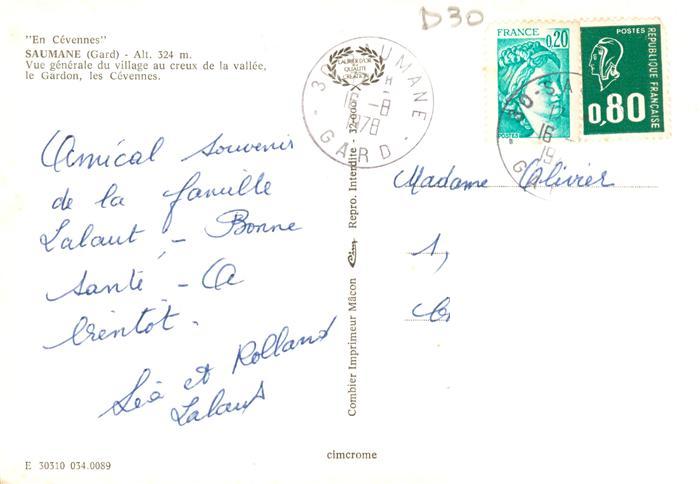 "En Cévennes"
SAUMANE (Gard) - Alt. 324 m.
Vue générale du village au creux de la vallée,
le Gardon, les Cévennes.
D30
30 SAUMANE
16 -8
1978
GARD
LAURIER D'OR
DE LA QUALITÉ
CRÉATION
FRANCE
0,20
POSTES
POSTES
RÉPUBLIQUE FRANÇAISE
0,80
16
19
Amical souvenir
de la famille
Lalaut, - Bonne
santé - A
bientôt.
Léa et Rolland
Lalaut
Madame Olivier
1,
Combier Imprimeur Mâcon Cim Repro. Interdite - 32-000
cimcrome
E 30310 034.0089